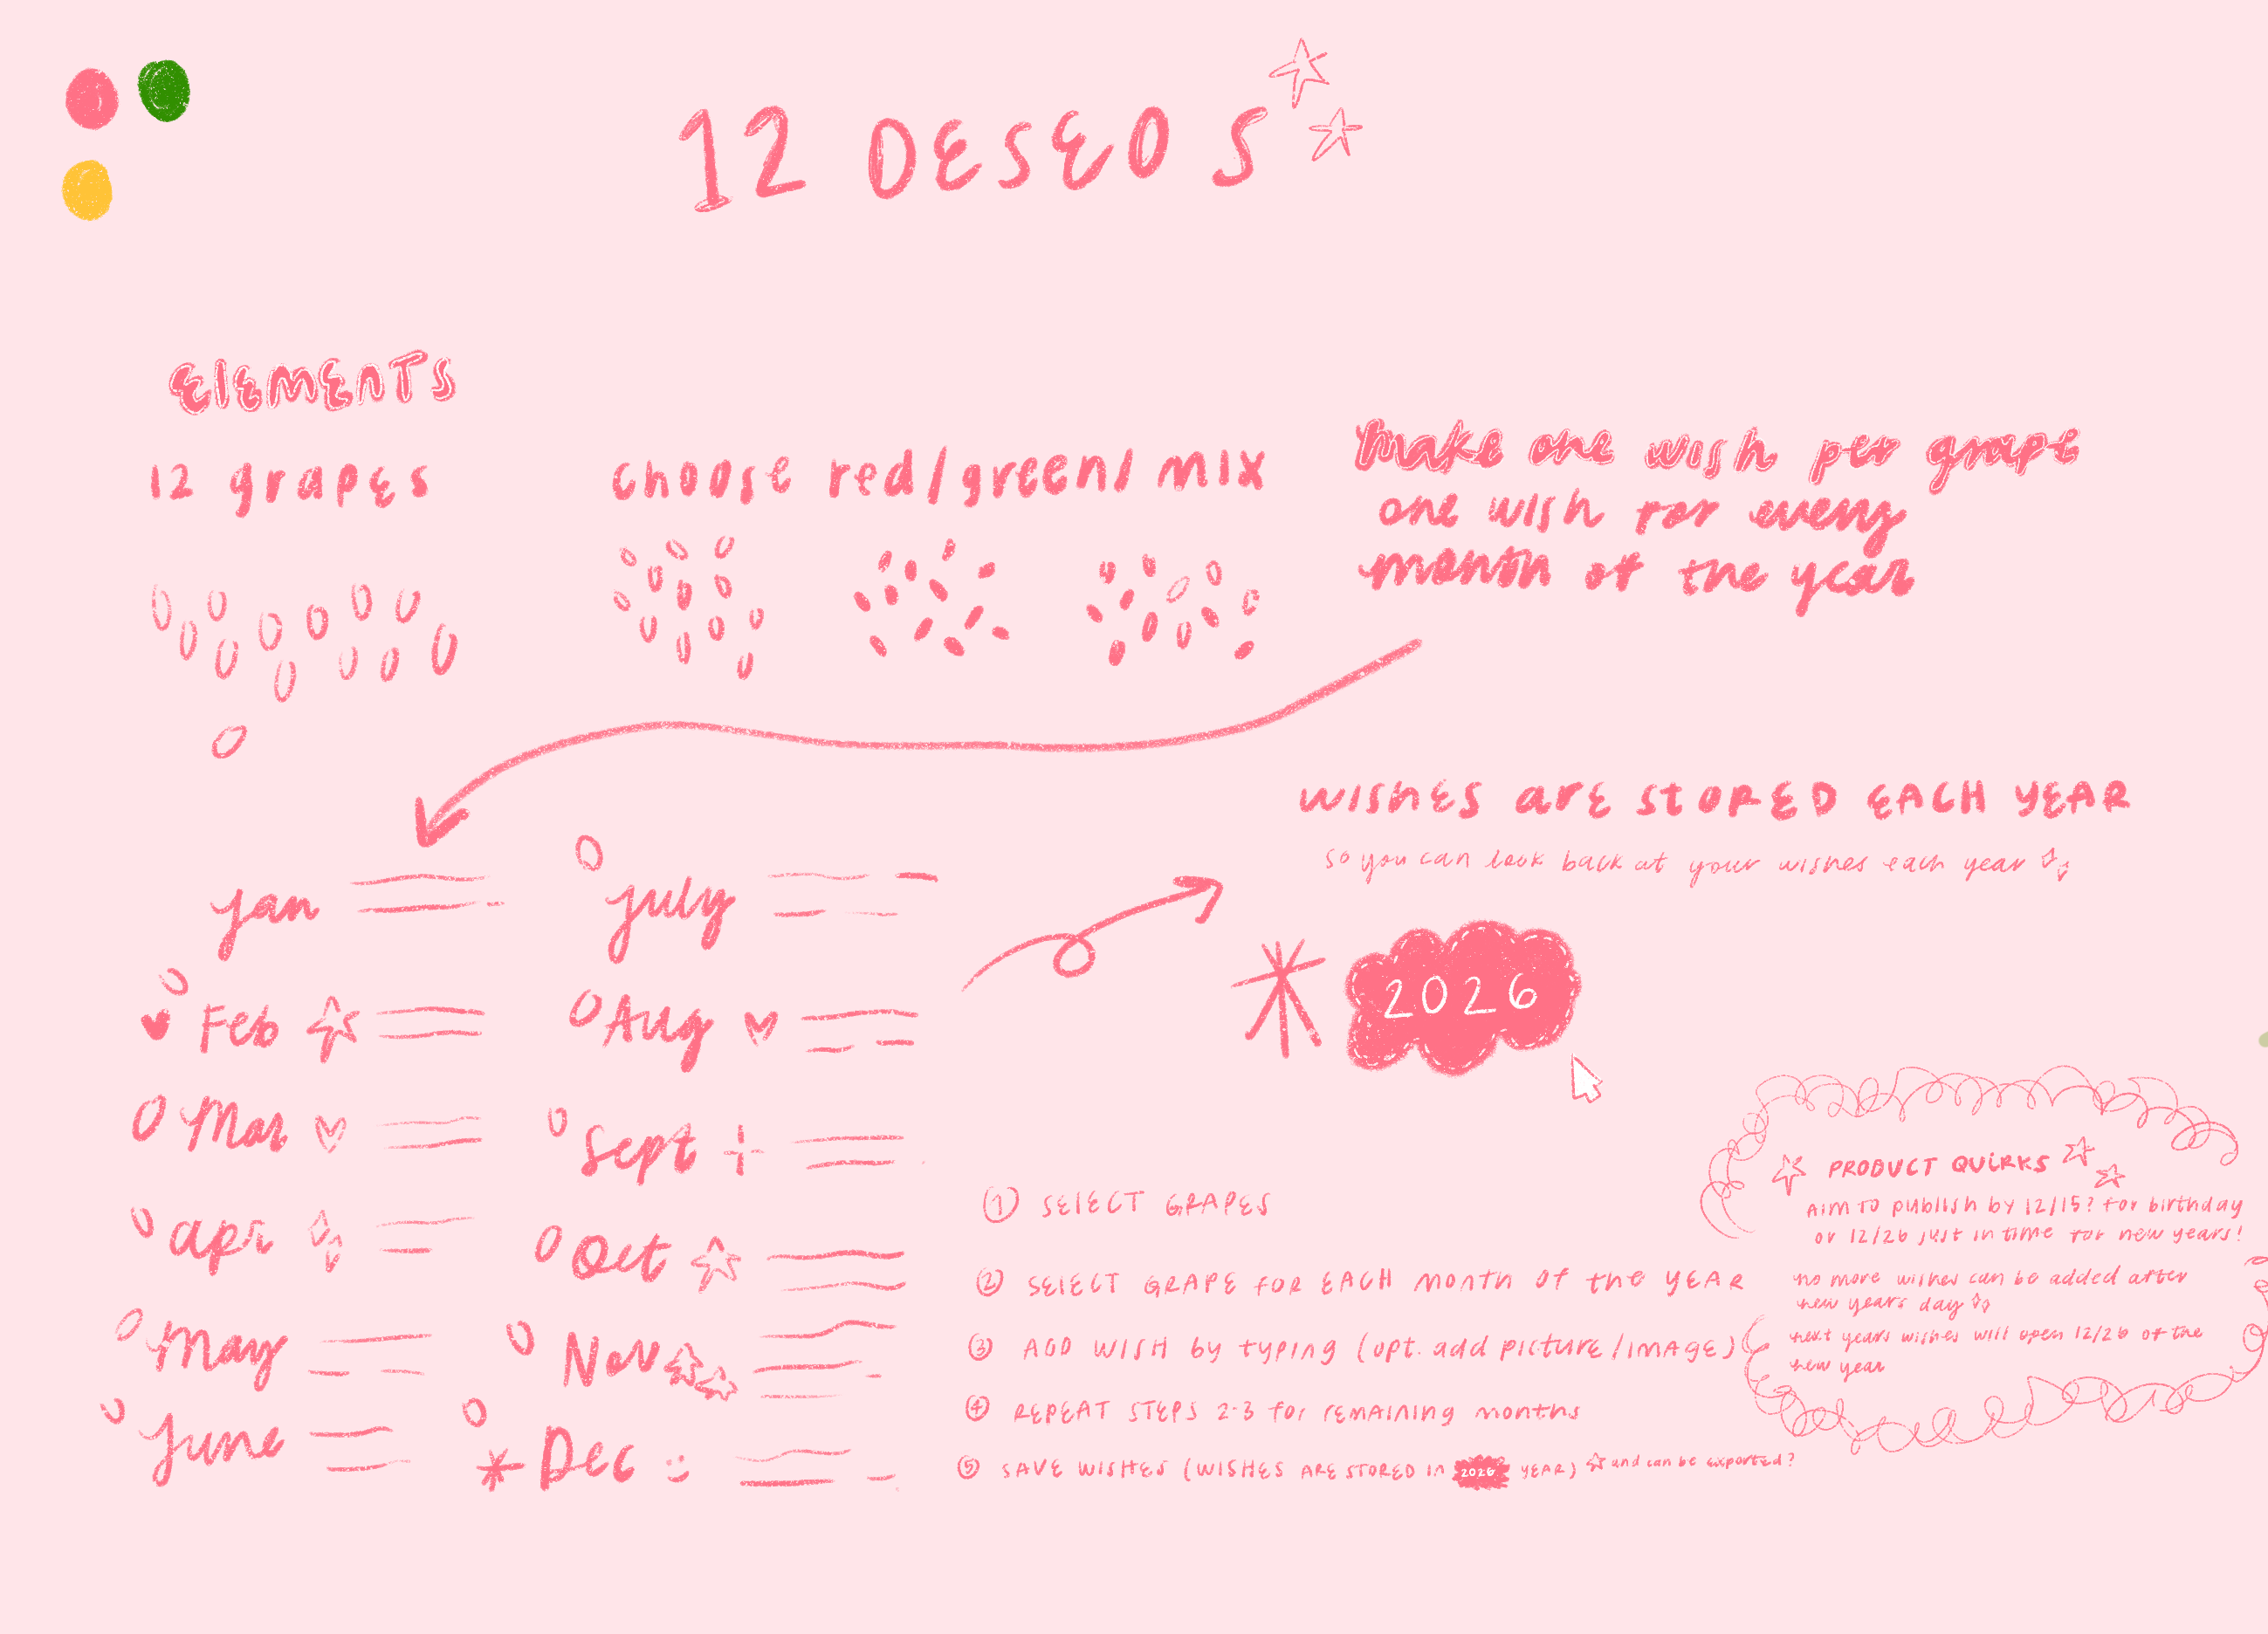 12 DESEOS
ELEMENTS
12 grapes
choose red/green/mix
make one wish per grape
one wish for every
month of the year
jan
Feb
Mar
apr
May
June
July
Aug
Sept
Oct
Nov
Dec
WISHES ARE STORED EACH YEAR
so you can look back at your wishes each year
2026
① SELECT GRAPES
② SELECT GRAPE FOR EACH MONTH OF the YEAR
③ ADD WISH by typing (opt. add picture/IMAGE)
④ REPEAT STEPS 2-3 for remaining months
⑤ SAVE WISHES (WISHES ARE STORED IN 2026 YEAR) and can be exported?
PRODUCT QUIRKS
Aim to publish by 12/15? for birthday
or 12/26 just in time for new years!
no more wishes can be added after
new years day
next years wishes will open 12/26 of the
new year